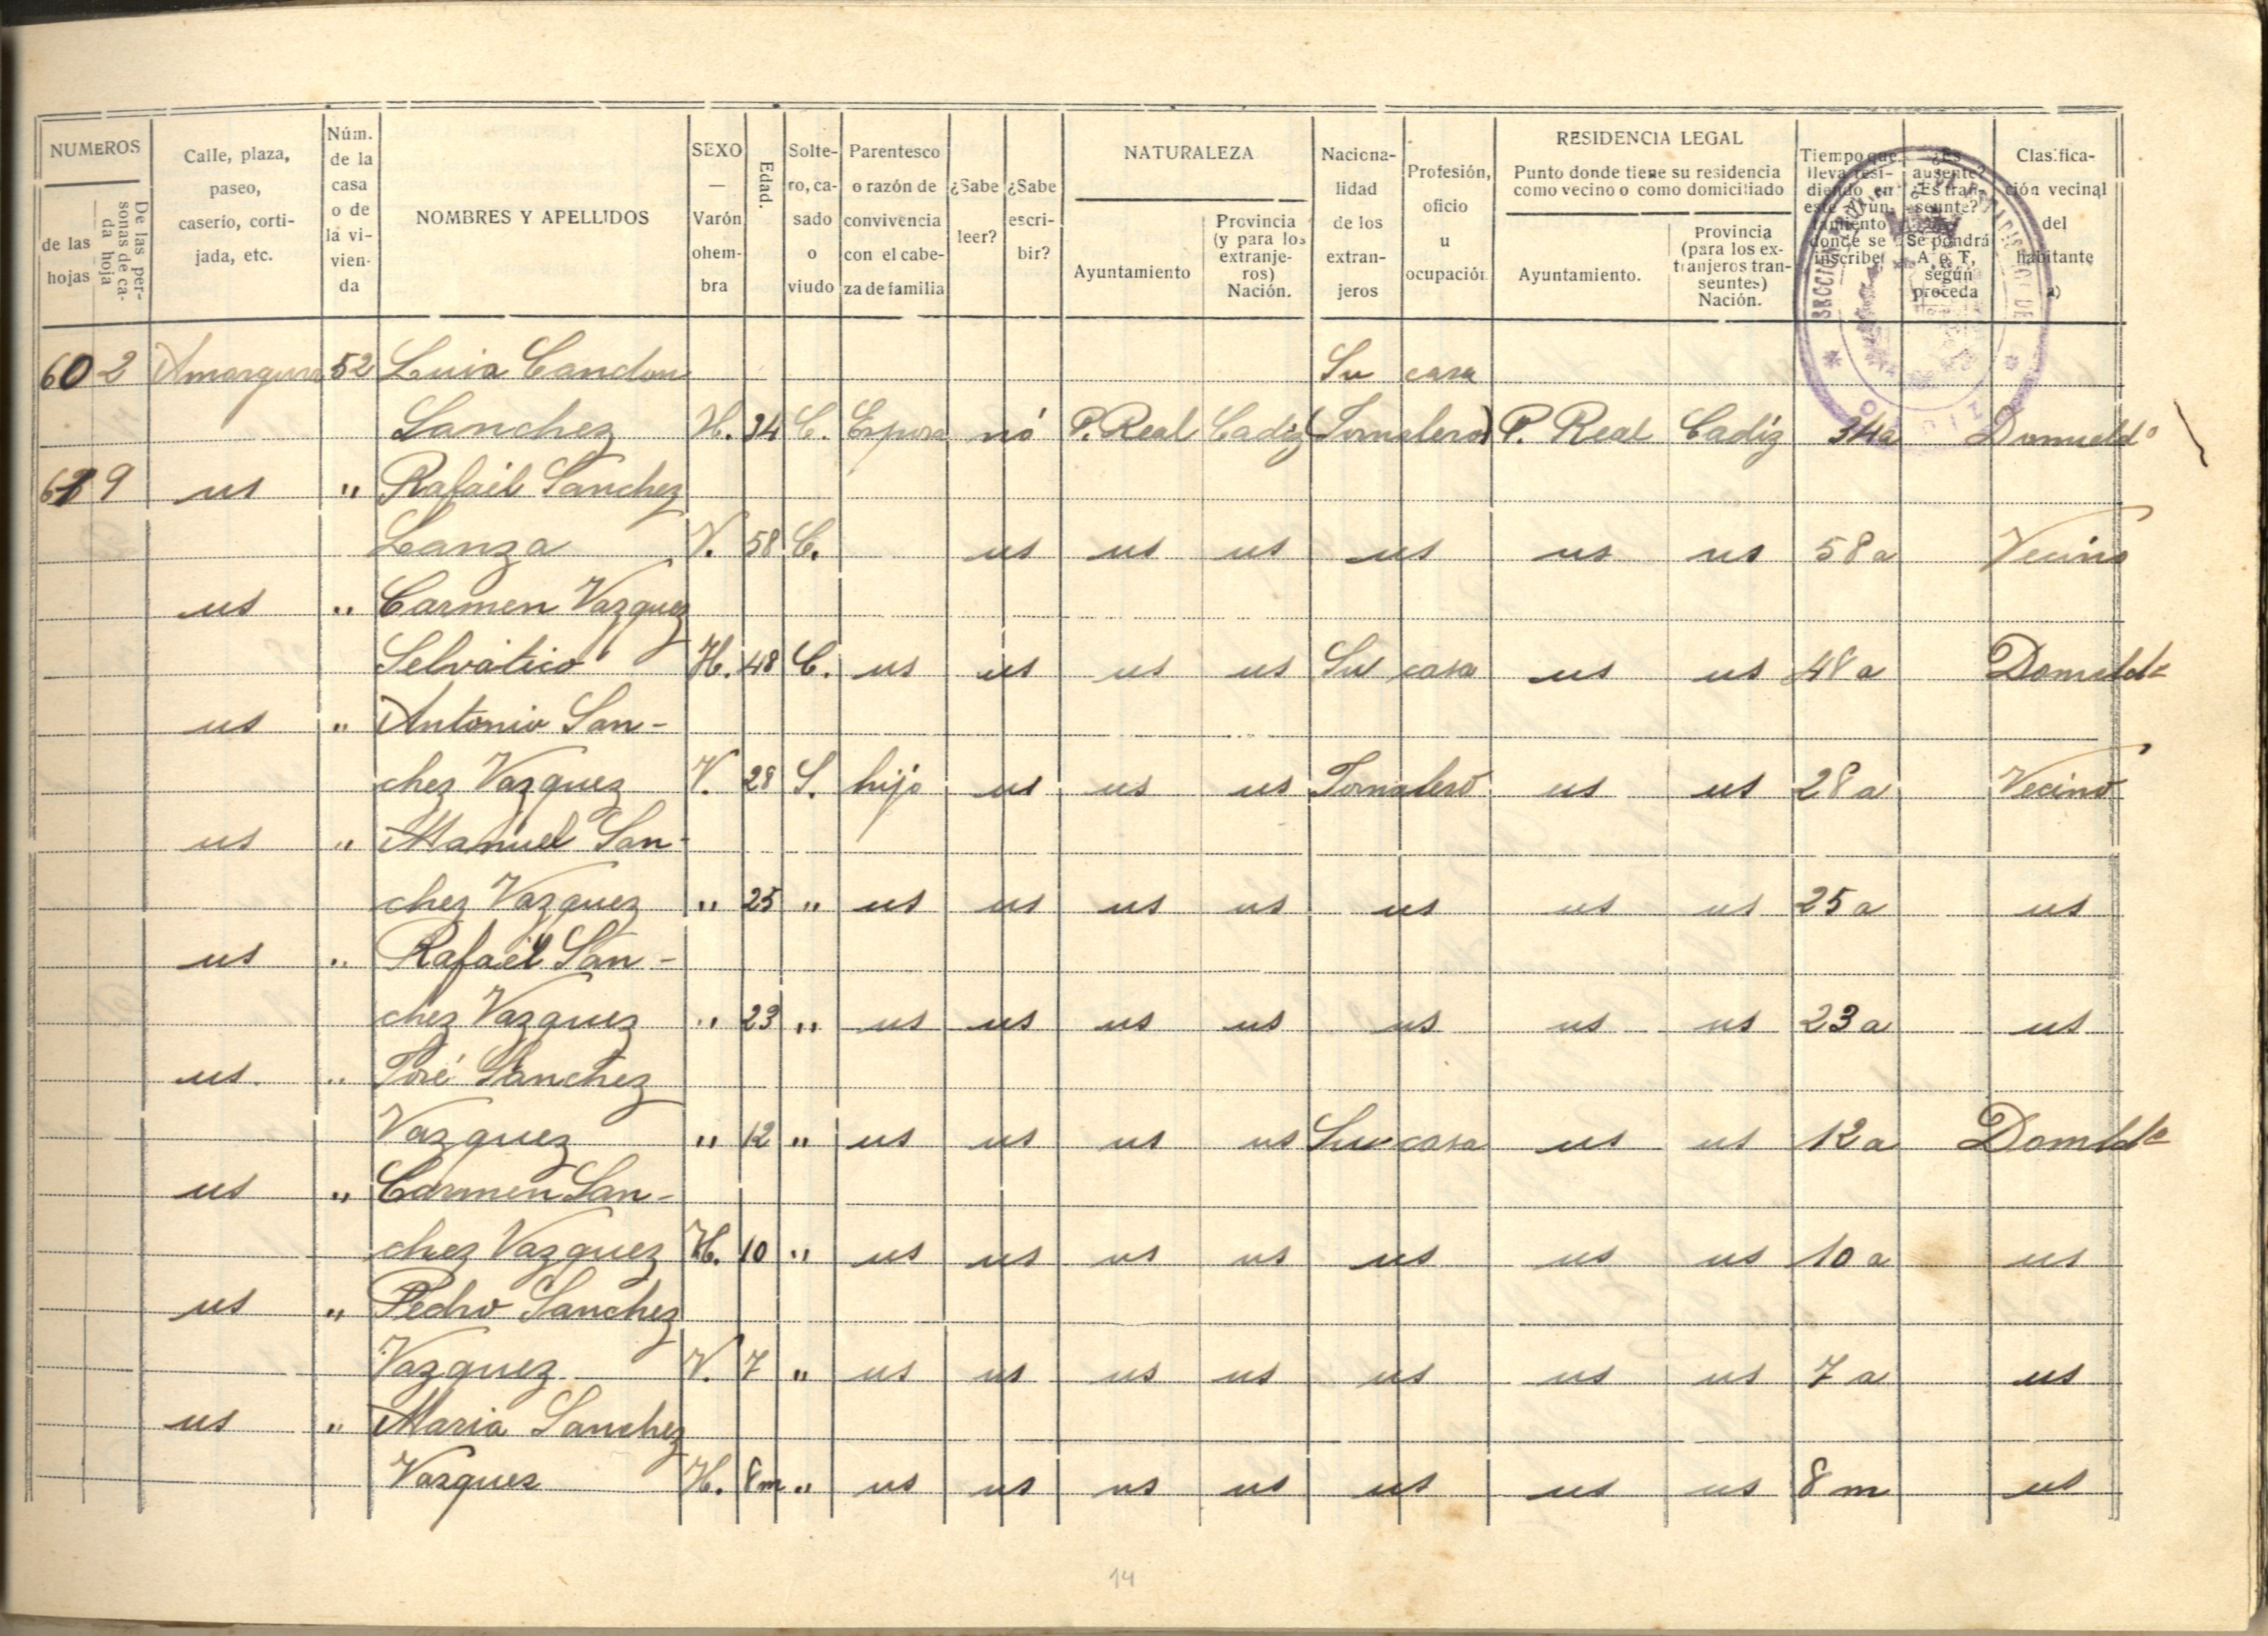 NUMEROS
de las hojas
De las personas de cada hoja
Calle, plaza, paseo, caserío, cortijada, etc.
Núm. de la casa o de la vivienda
NOMBRES Y APELLIDOS
SEXO — Varón o hembra
Edad.
Soltero, casado o viudo
Parentesco o razón de convivencia con el cabeza de familia
¿Sabe leer?
¿Sabe escribir?
NATURALEZA
Ayuntamiento
Provincia (y para los extranjeros) Nación.
Nacionalidad de los extranjeros
Profesión, oficio u ocupación
RESIDENCIA LEGAL
Punto donde tiene su residencia como vecino o como domiciliado
Ayuntamiento.
Provincia (para los extranjeros transeuntes) Nación.
Tiempo que lleva residiendo en este Ayuntamiento donde se inscribe
¿Es ausente? ¿Es transeunte? Se pondrá A o T, según proceda
Clasificación vecinal del habitante a)
60 2 Amargura 52 Luisa Candon Su casa
Sanchez H. 34 C. Esposa nó P. Real Cadiz (Jornalero) P. Real Cadiz 34a
9 us " Rafael Sanchez
Lanza V. 58 C. us us us us us us 58 a Vecino
us " Carmen Vazquez
Selvatico H. 48 C. us us us us Su casa us us 48 a Domcldª
us " Antonio San-
chez Vazquez V. 28 S. hijo us us us Jornalero us us 28 a Vecino
us " Manuel San-
chez Vazquez " 25 " us us us us us us us 25 a us
us " Rafael San-
chez Vazquez " 23 " us us us us us us us 23 a us
us. " José Sanchez
Vazquez " 12 " us us us us Su casa us us 12 a
us " Carmen San-
chez Vazquez H. 10 " us us us us us us us 10 a us
us " Pedro Sanchez
Vazquez V. 7 " us us us us us us us 7 a us
us " Maria Sanchez
Vazquez H. 8m " us us us us us us us 8 m us
14